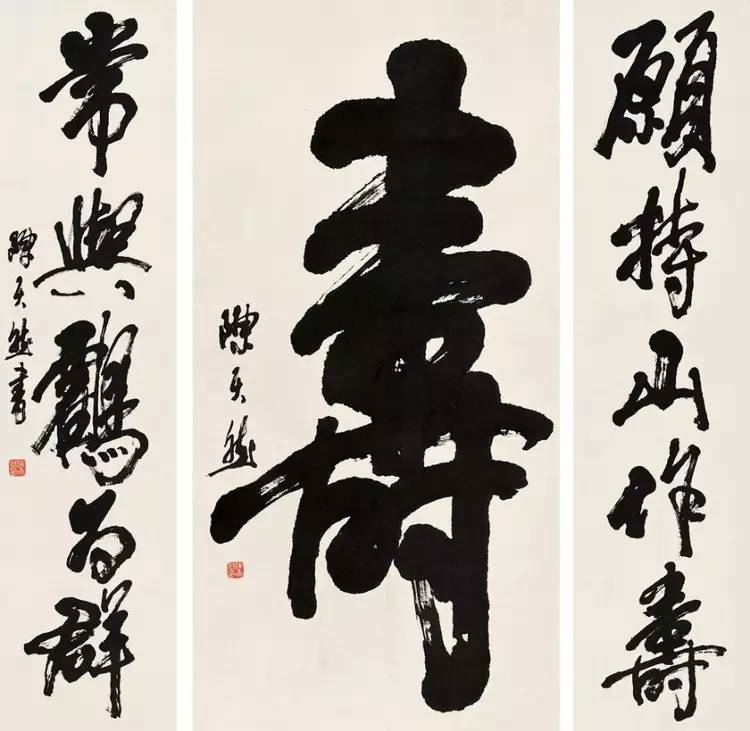 願持山作壽
壽
陳天然
常與鶴为群
陳天然書